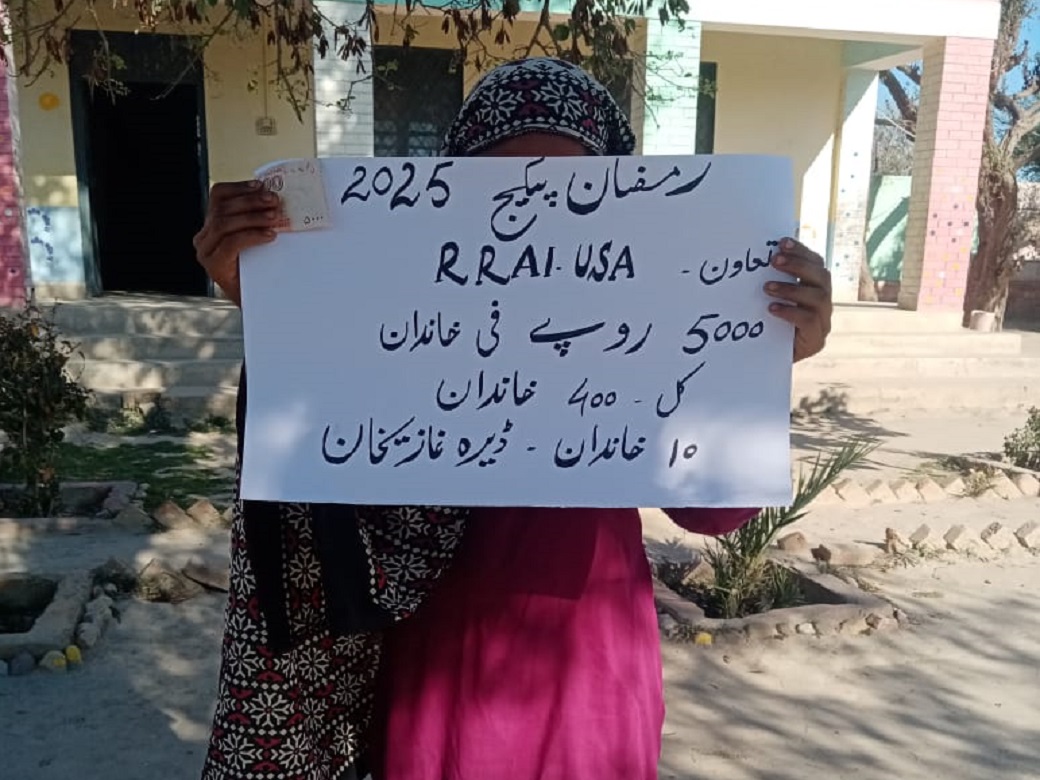 رمضان پیکیج 2025
تعاون - RRAI-USA
5000 روپے فی خاندان
کل - 400 خاندان
10 خاندان - ڈیرہ غازیخان
۵۰۰۰